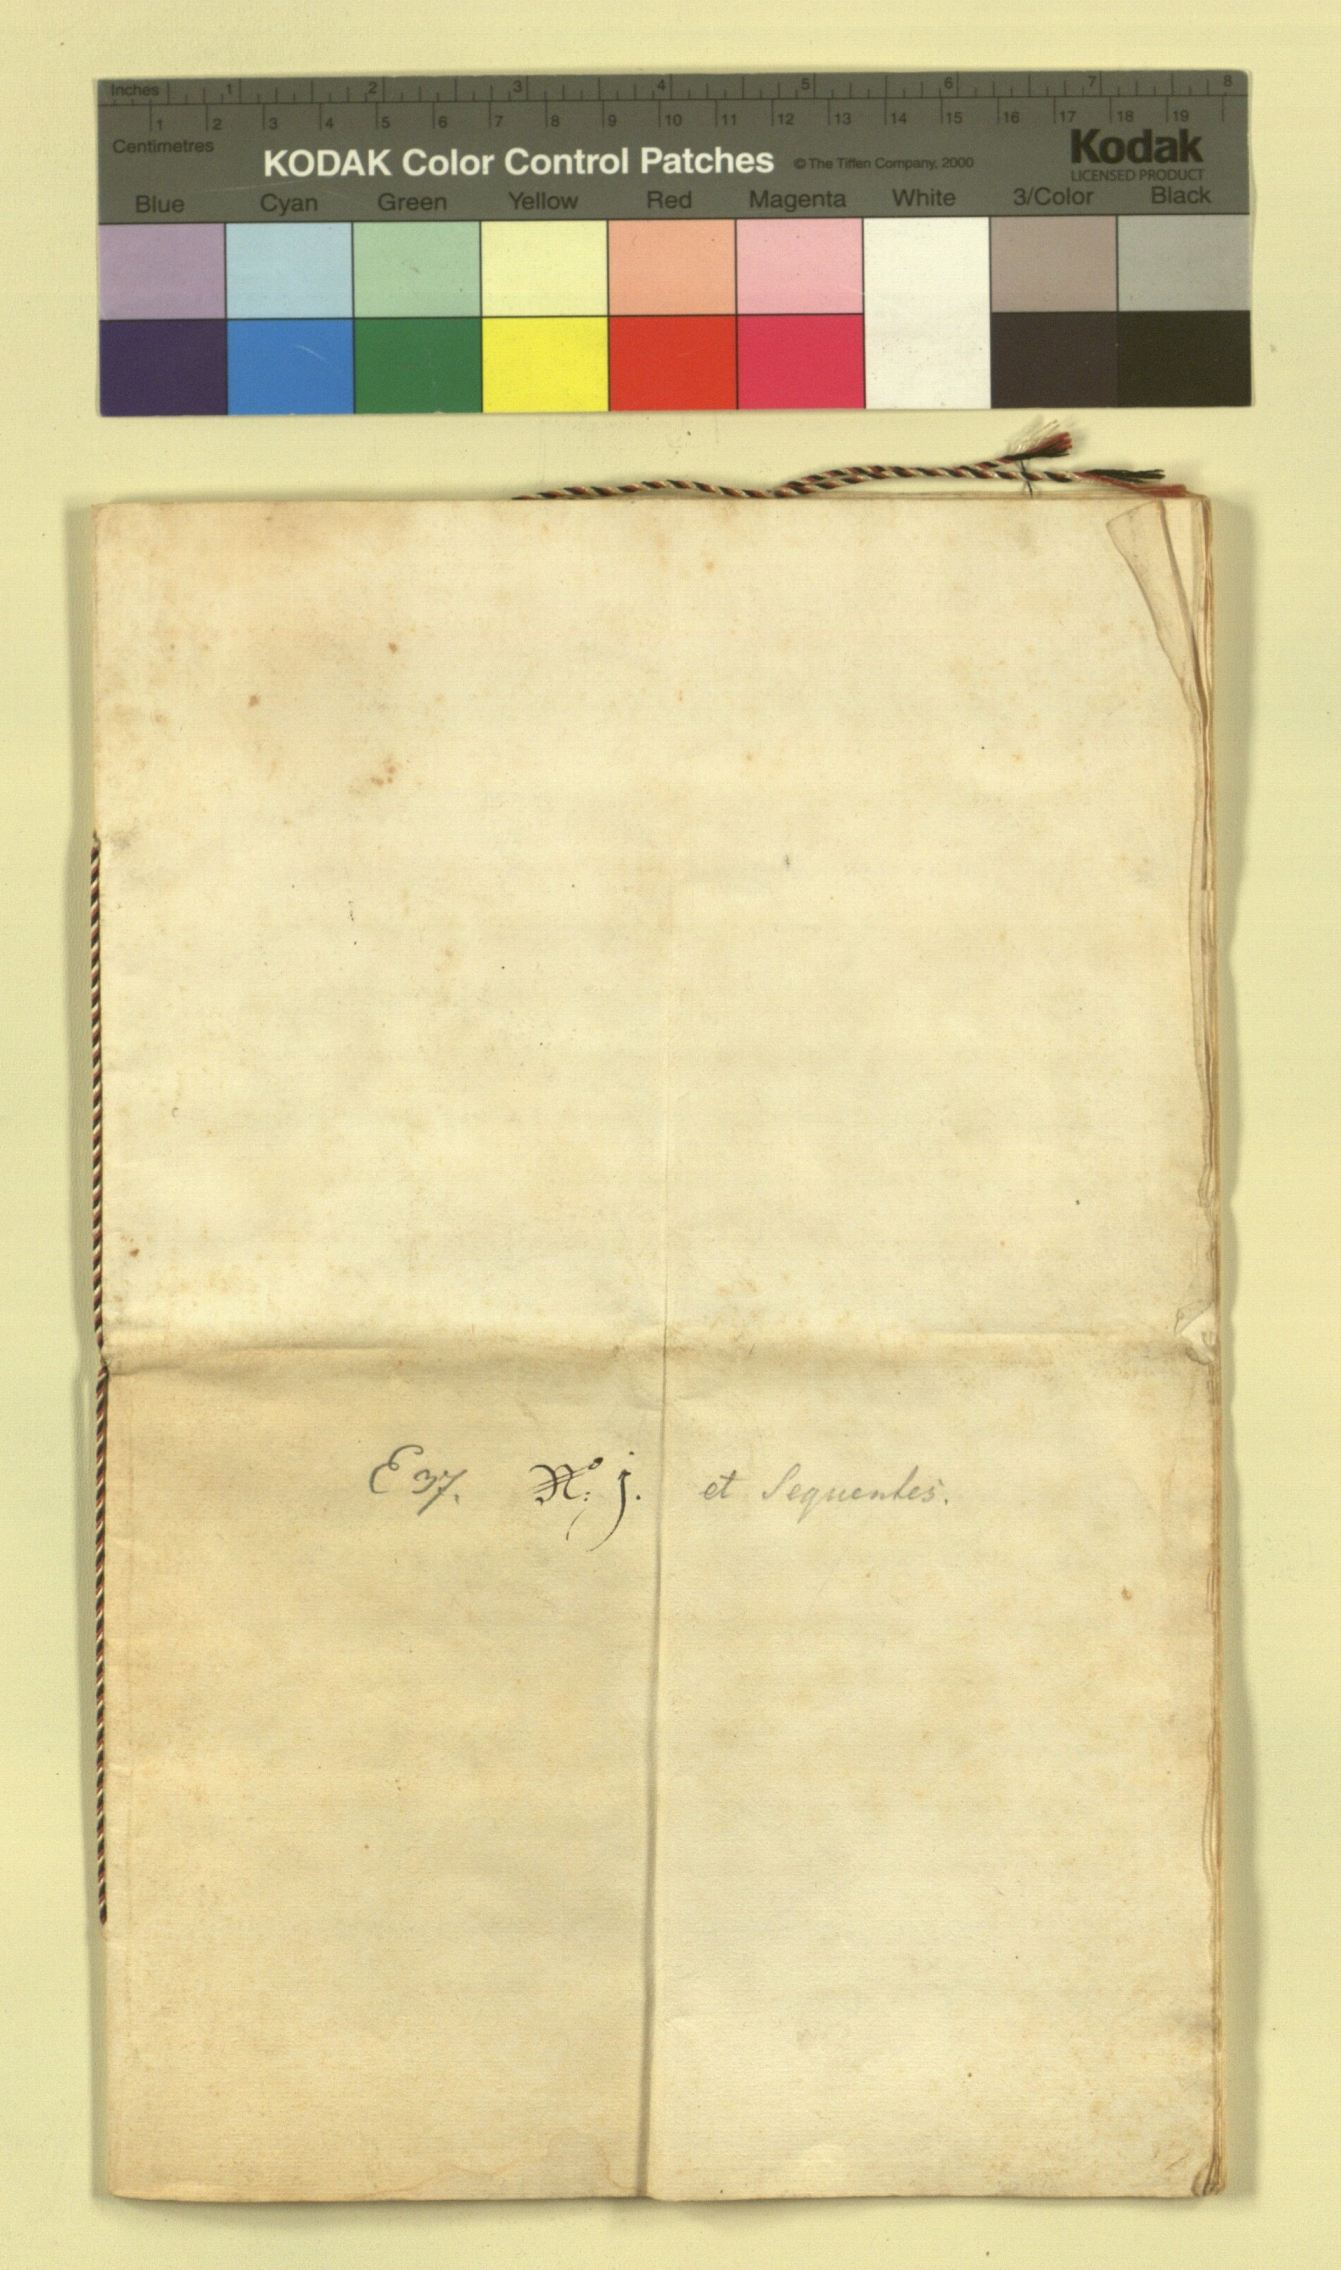 Inches 1 2 3 4 5 6 7 8
1 2 3 4 5 6 7 8 9 10 11 12 13 14 15 16 17 18 19
Centimetres
KODAK Color Control Patches © The Tiffen Company, 2000 Kodak
LICENSED PRODUCT
Blue Cyan Green Yellow Red Magenta White 3/Color Black
E 37. No: j. et Sequentes.